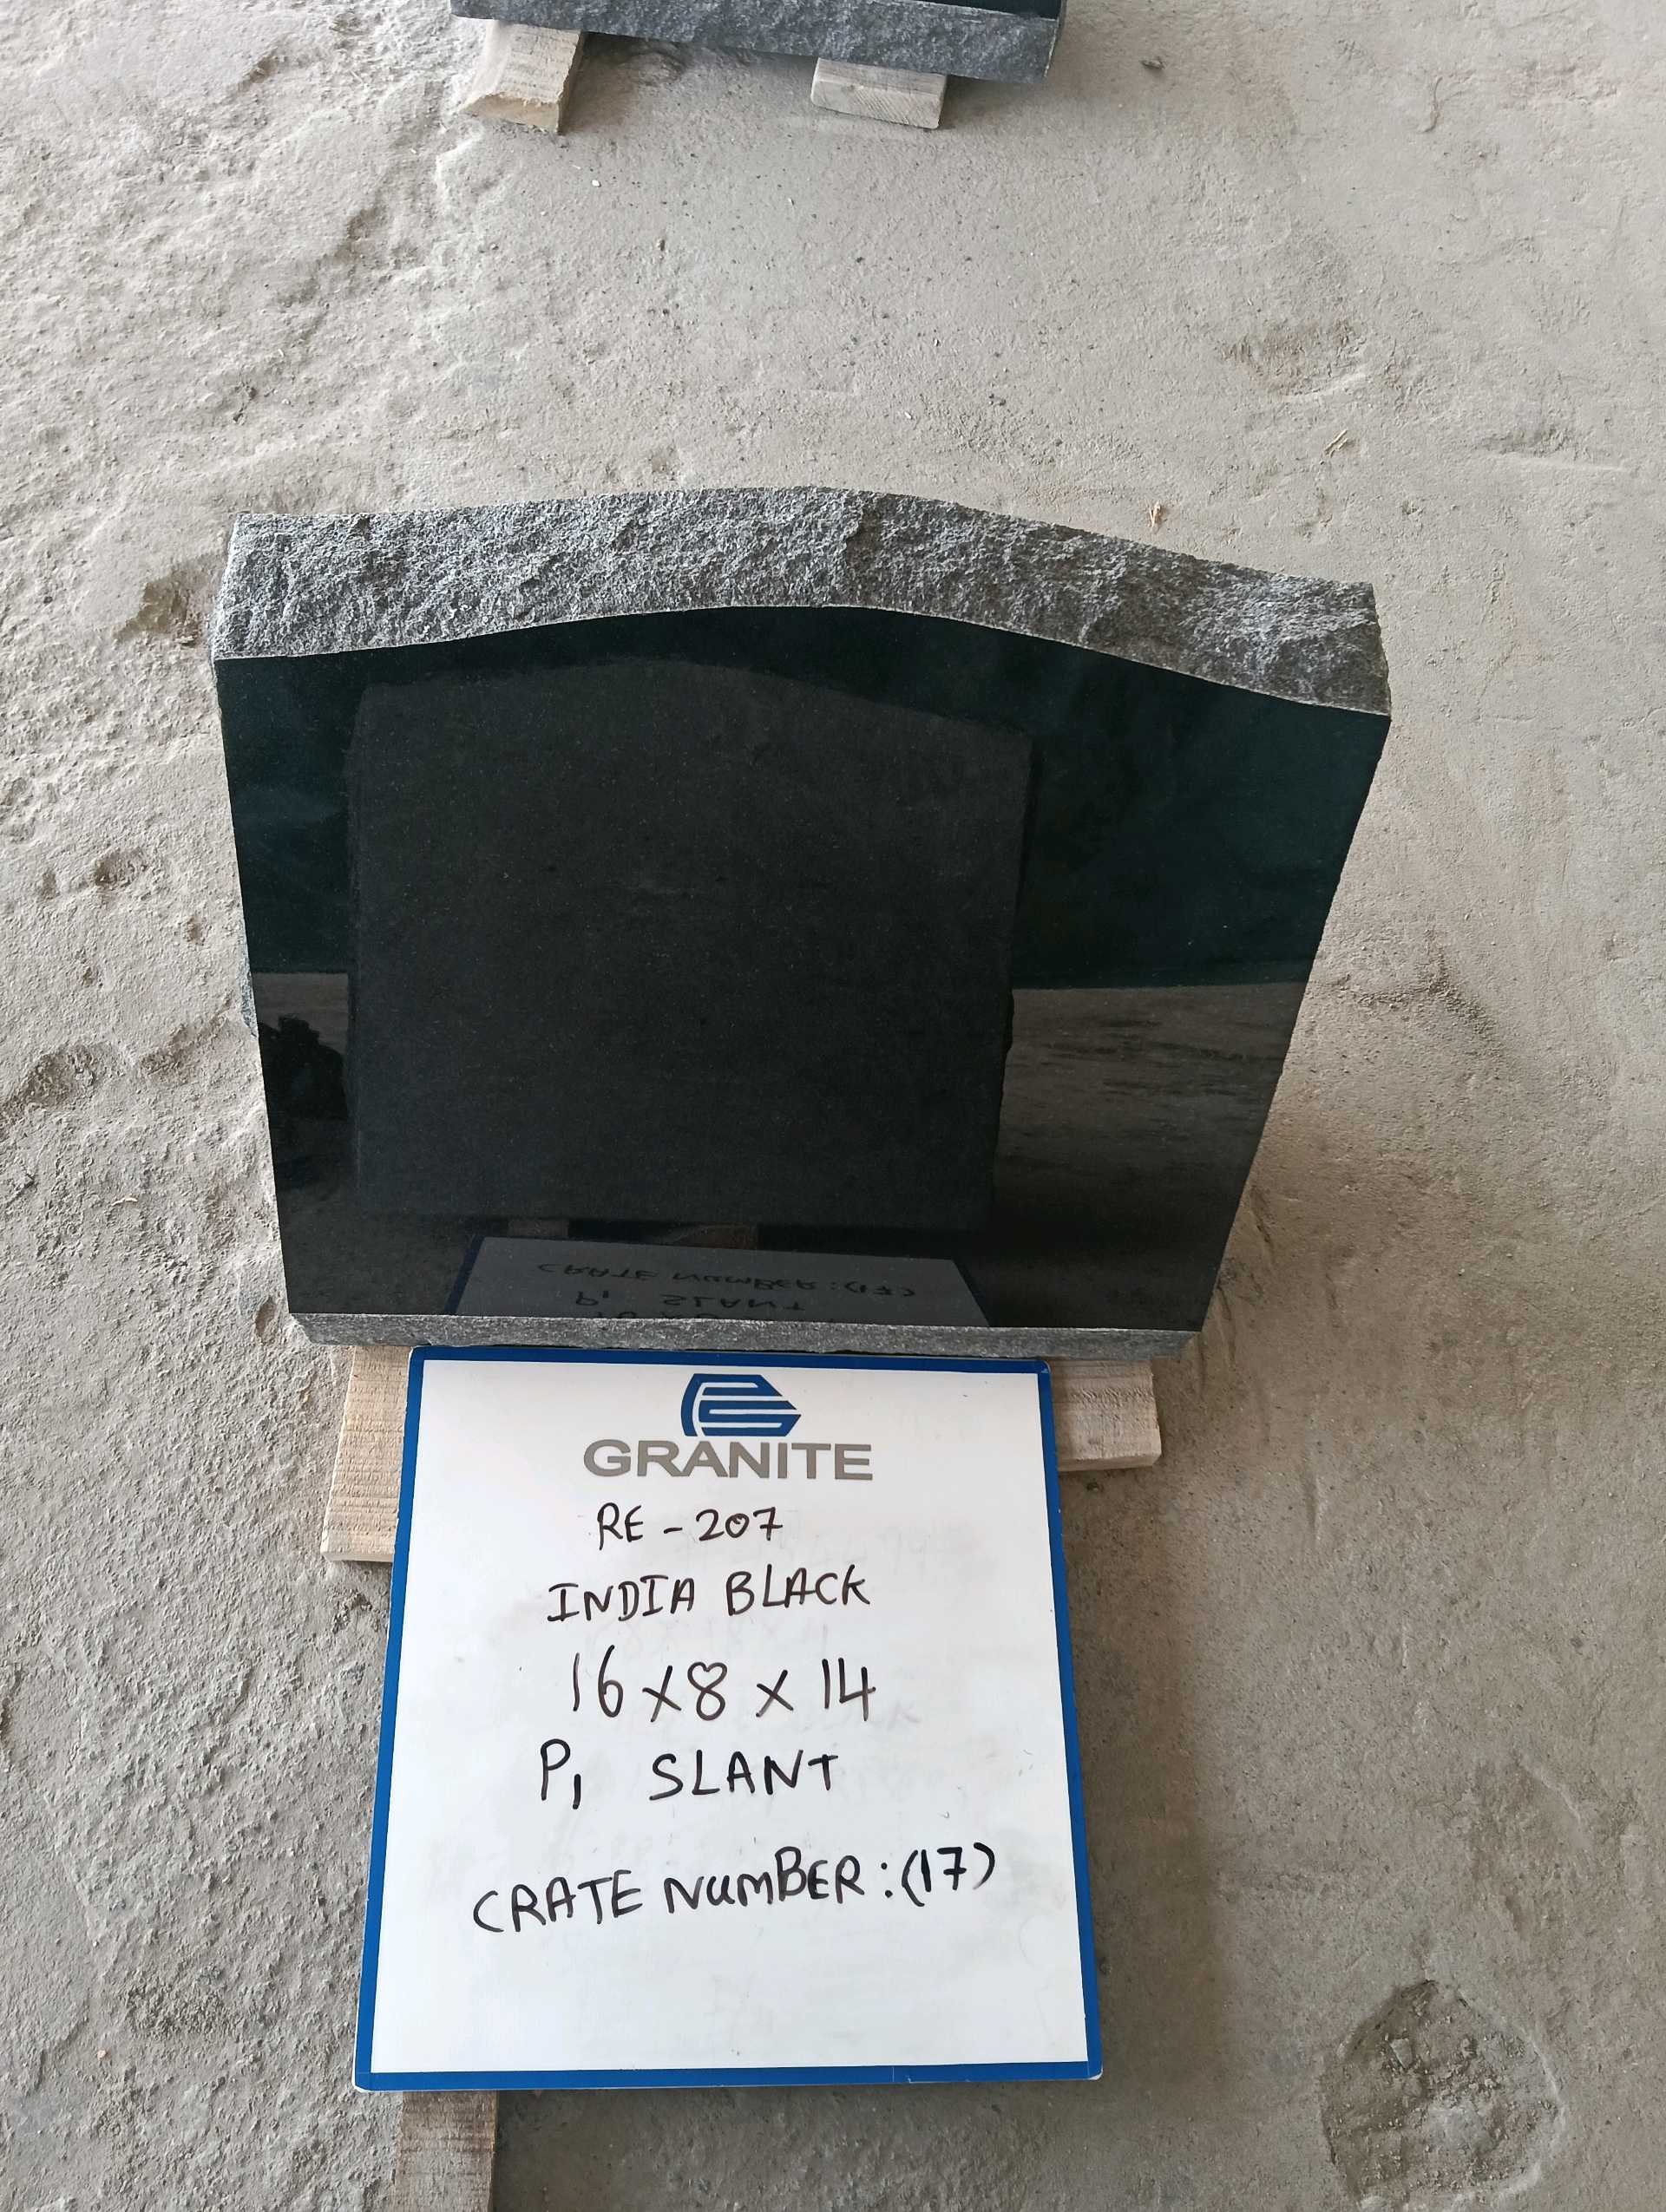 GRANITE
RE - 207
INDIA BLACK
16 x 8 x 14
P1 SLANT
CRATE NUMBER : (17)